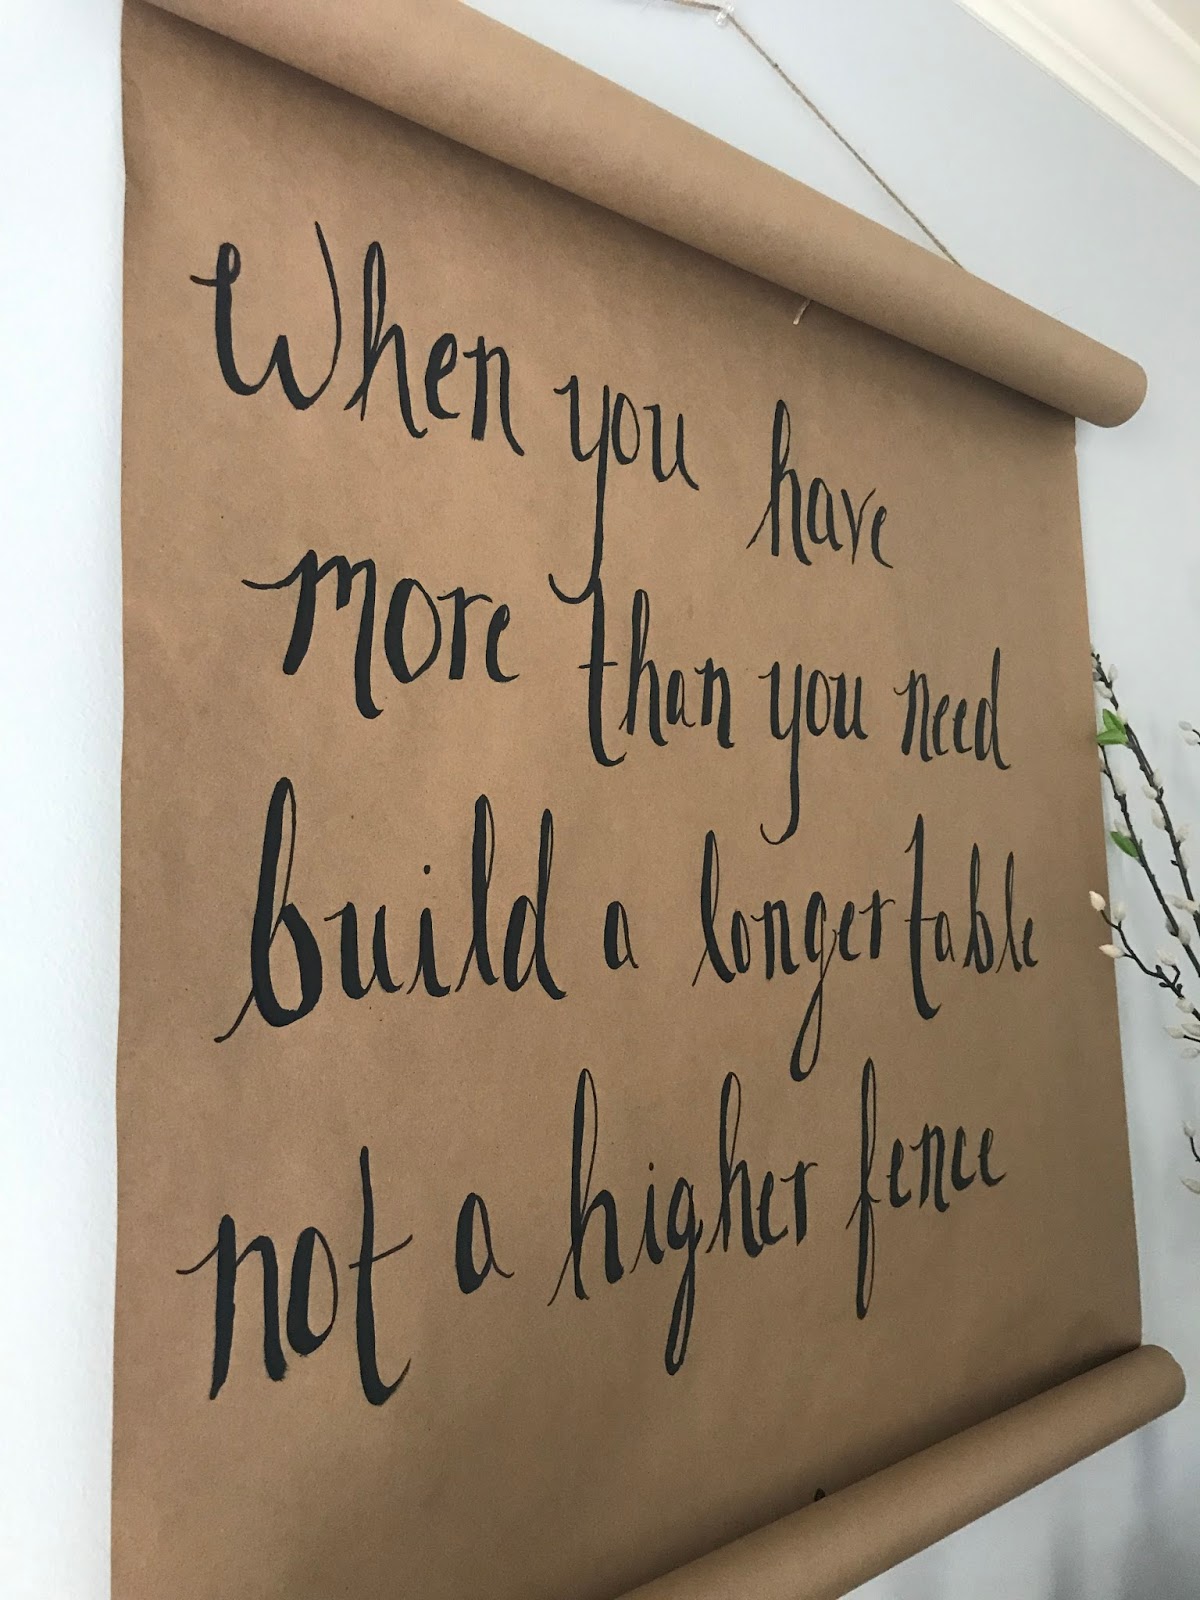 When you have
more than you need
build a longer table
not a higher fence